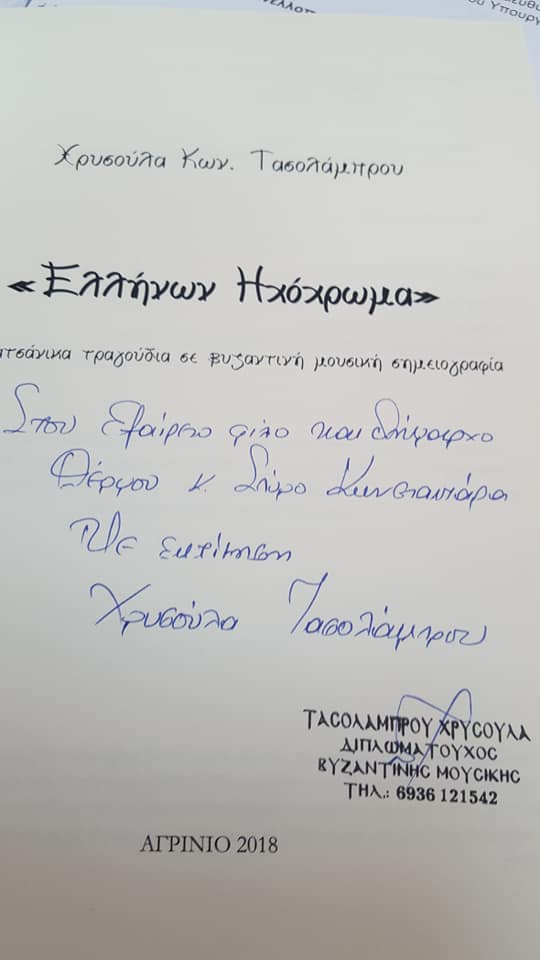 Χρυσούλα Κων. Τασολάμπρου
«Ελλήνων Ηχόχρωμα»
τσάνικα τραγούδια σε βυζαντινή μουσική σημειογραφία
Στον εξαίρετο φίλο και Δήμαρχο
Θέρμου κ. Σπύρο Κωνσταντάρα
Με εκτίμηση
Χρυσούλα Τασολάμπρου
ΤΑΣΟΛΑΜΠΡΟΥ ΧΡΥΣΟΥΛΑ
ΔΙΠΛΩΜΑΤΟΥΧΟΣ
ΒΥΖΑΝΤΙΝΗΣ ΜΟΥΣΙΚΗΣ
ΤΗΛ.: 6936 121542
ΑΓΡΙΝΙΟ 2018